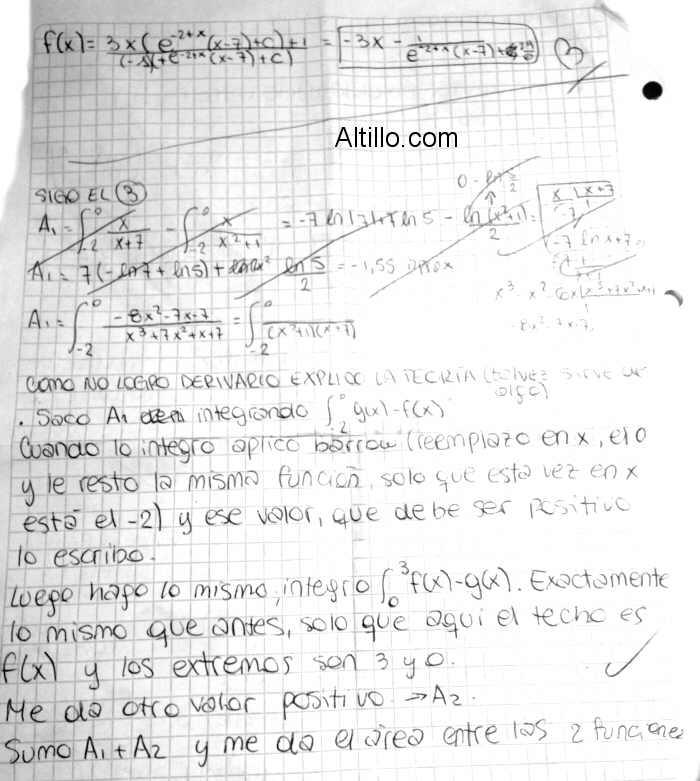 f(x) = 3x(e^-2+x (x-7)+c)+1 / (-1)(+e^-2+x (x-7)+c) = -3x - 1 / e^-2+x (x-7)+
Altillo.com
SIGO EL ③
A₁ = ∫₋₂⁰ x/x+7 - ∫₋₂⁰ x/x²+1 = -7 ln 7 + 7 ln 5 - ln(x²+1)/2 =
A₁ = 7(-ln7 + ln5) + ln 5/2 = -1,55 aprox
A₁ = ∫₋₂⁰ -8x²-7x+7 / x³+7x²+x+7 = ∫₋₂⁰ / (x²+1)(x+7)
COMO NO LOGRO DERIVARLO EXPLICO LA TEORIA (talvez sirve de
algo)
. Saco A₁ integrando ∫₋₂⁰ g(x)-f(x)
Cuando lo integro aplico barrow (reemplazo en x, el 0
y le resto la misma función, solo que esta vez en x
está el -2) y ese valor, que debe ser positivo
lo escribo.
Luego hago lo mismo, integro ∫₀³ f(x)-g(x). Exactamente
lo mismo que antes, solo que aquí el techo es
f(x) y los extremos son 3 y 0.
Me da otro valor positivo → A₂.
Sumo A₁ + A₂ y me da el área entre las 2 funciones